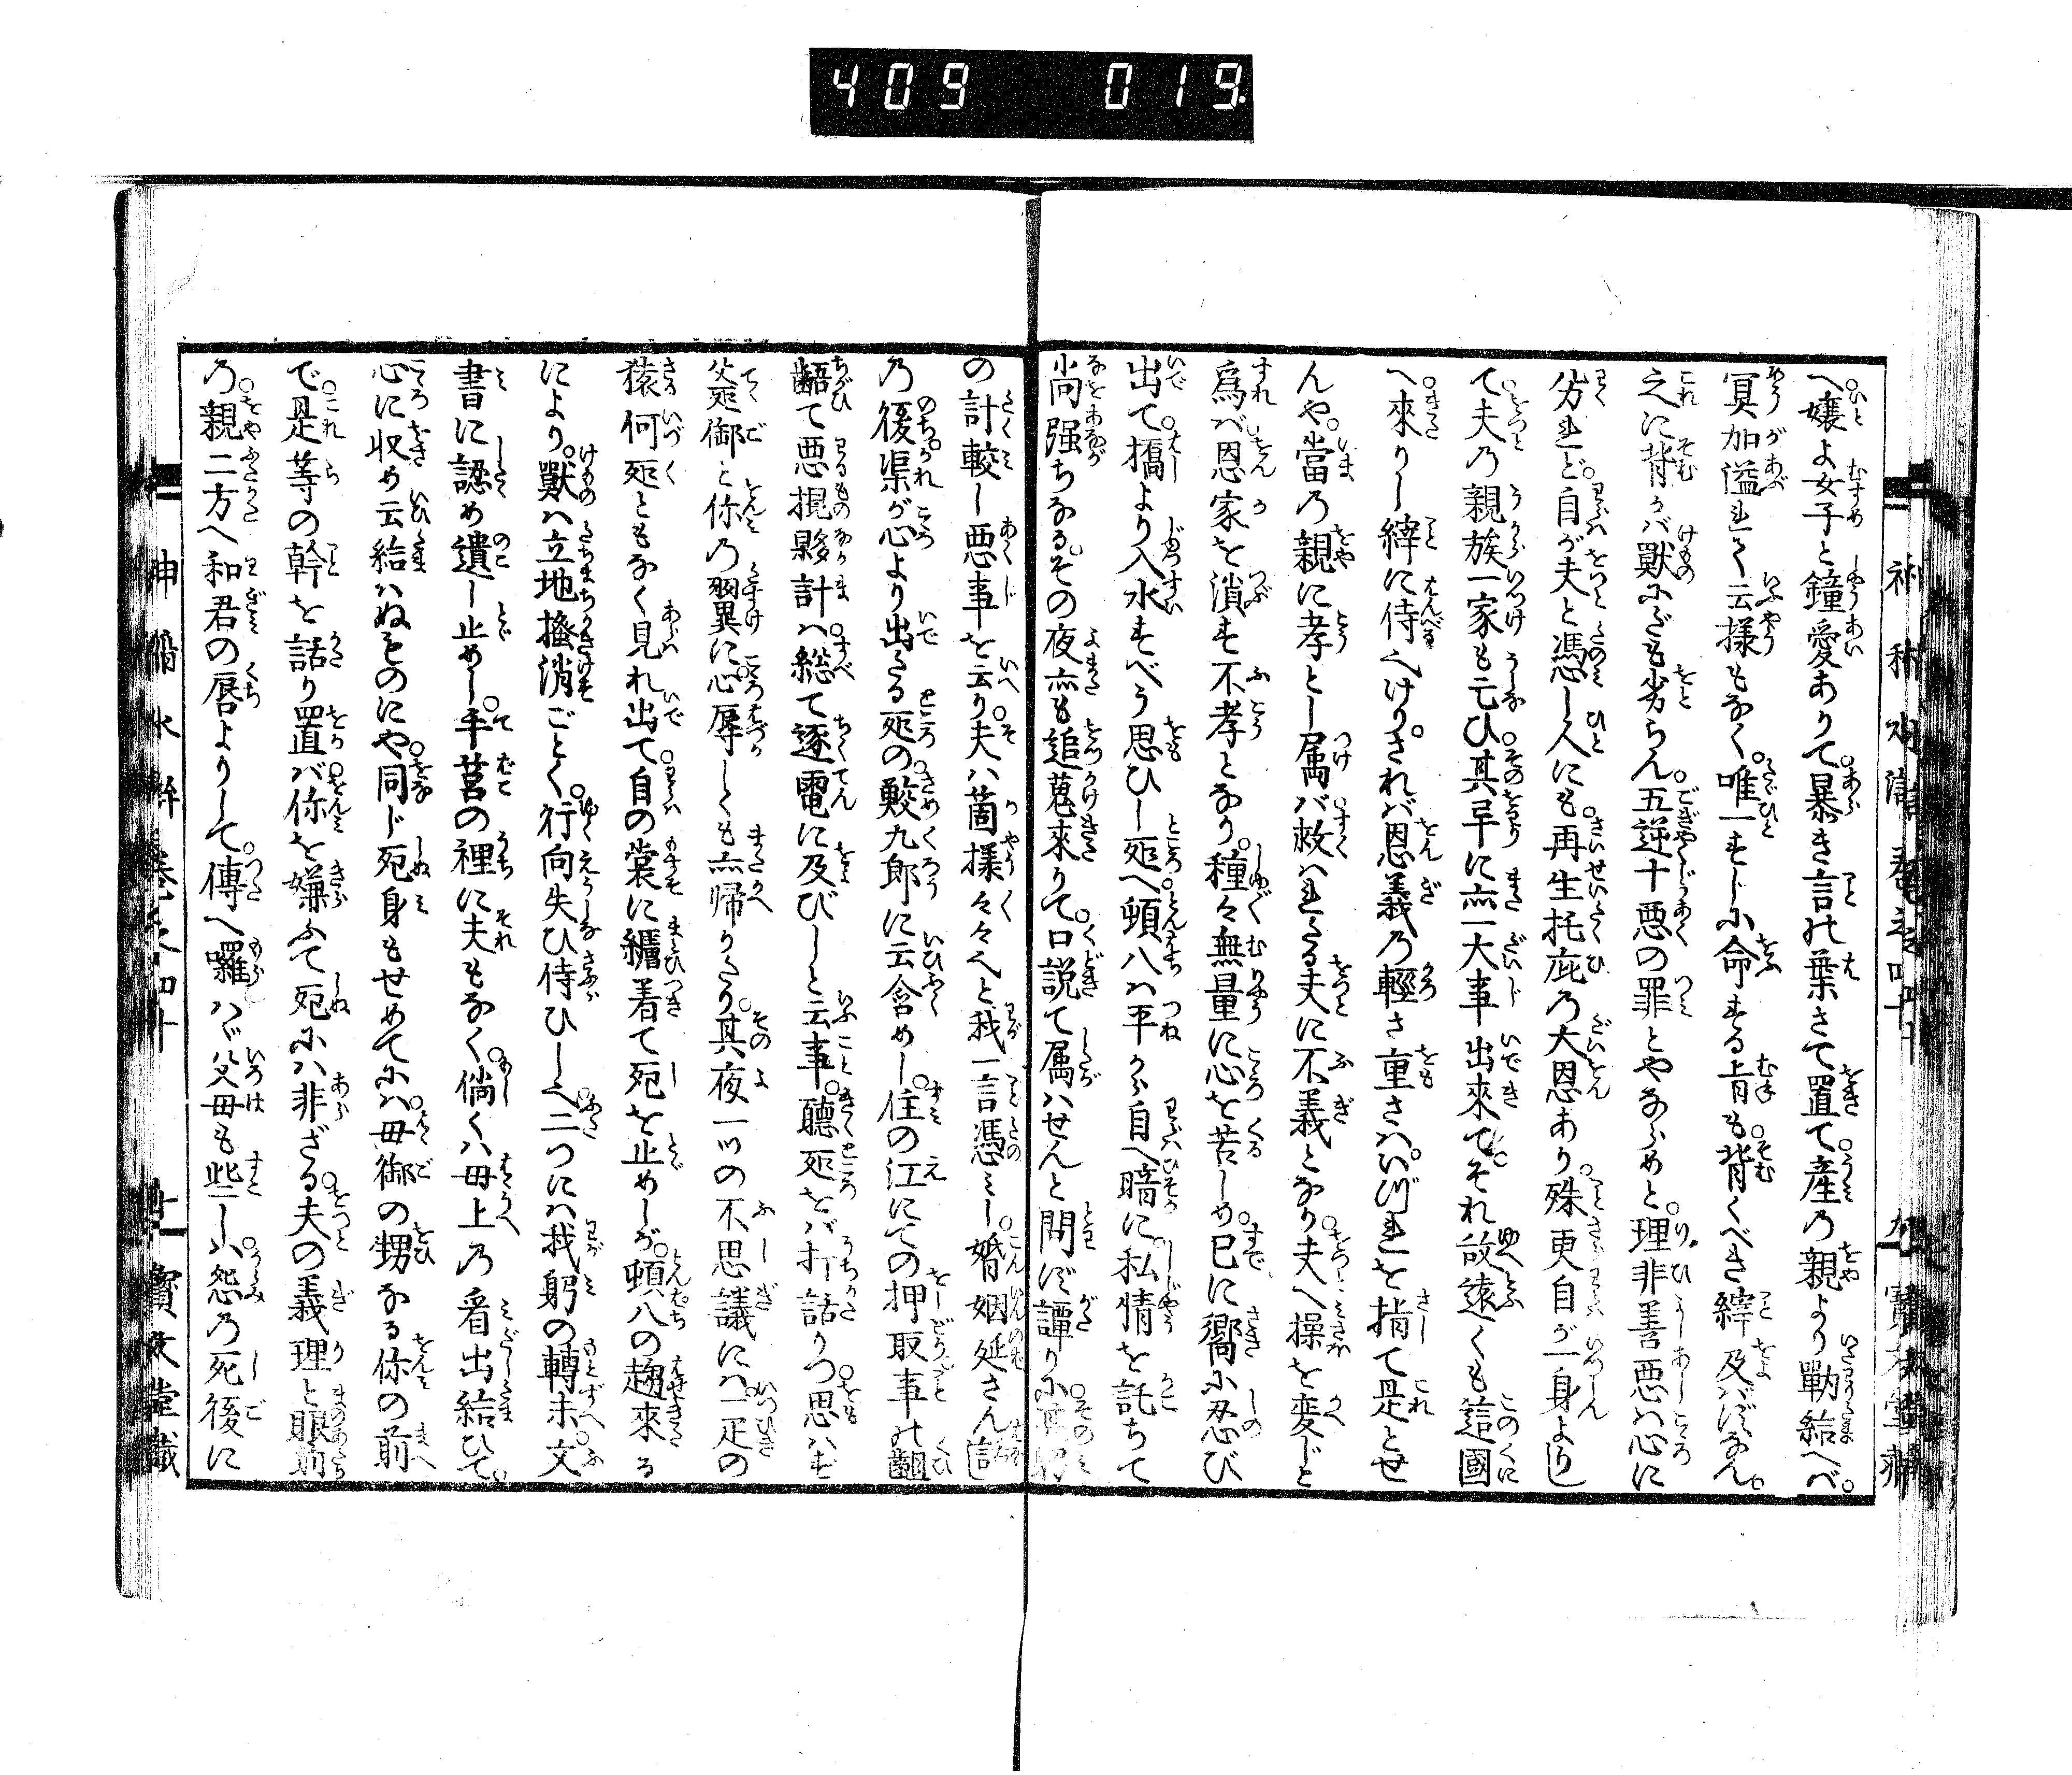 409 019
へ。嬢よ女子と鐘愛ありて。暴き言の葉さて置て。産の親より勦給へバ。
冥加溢れて云様もなく。唯一すぢに命する肯も。背くべき縡及バずなん。
之に背かバ獣にだも劣らん。五逆十悪の罪とやならめと。理非善悪ハ心に
労れど。自が夫と憑し人にも。再生托庇の大恩あり。殊更自が一身よりし
て。夫の親族一家も亡ひ。其早に亦一大事出來て。それ故遠くも這國
へ來りし縡に侍へけり。されバ恩義の輕さ重さハ。いづれを揹て是とせ
んや。當の親に孝とし属バ。救ハれたる夫に不義となり。夫へ操を変じと
為バ。恩家を潰す不孝となり。種々無量に心を苦しめ。已に嚮に忍び
出て。橋より入水すべう思ひし処へ。頓八ハ平から自へ暗に。私情を託ちて
尚强ちなるぞ。その夜亦も追蒐來りて。口説て属ハせんと問ず譚りに。其躬
の計較し悪事を云り。夫ハ箇様々々と我一言憑ミし。婚姻延さん
の後。渠が心より出たる処の。鮫九郎に云含めし。住の江にての押取事の齟
齬て悪棍夥計ハ。総て逐電に及びしと云事。聽処をバ打話りつ。思ハず
父御と你の翼に。心辱しくも亦帰りたり。其夜一ツの不思議にハ。一疋の
猿何処ともなく見れ出て。自の裳に纏着て死を止めしが。頓八の趨來る
により。獣ハ立地掻消ごとく。行向失ひ侍ひしへ。二つにハ我躬の轉末。文
書に認め遺し止めし。手莒の裡に夫もなく。倘くハ母上の看出給ひて。
心に収め云給ハぬものにや。同じ死身もせめてにハ。母御の甥なる你の前
で。是等の幹を話り置バ。你を嫌ふて死にハ非ざる。夫の義理と眼前
の。親二方へ和君の唇よりして。傳へ囉ハゞ父母も些しハ。怨の死後に
寳文堂藏